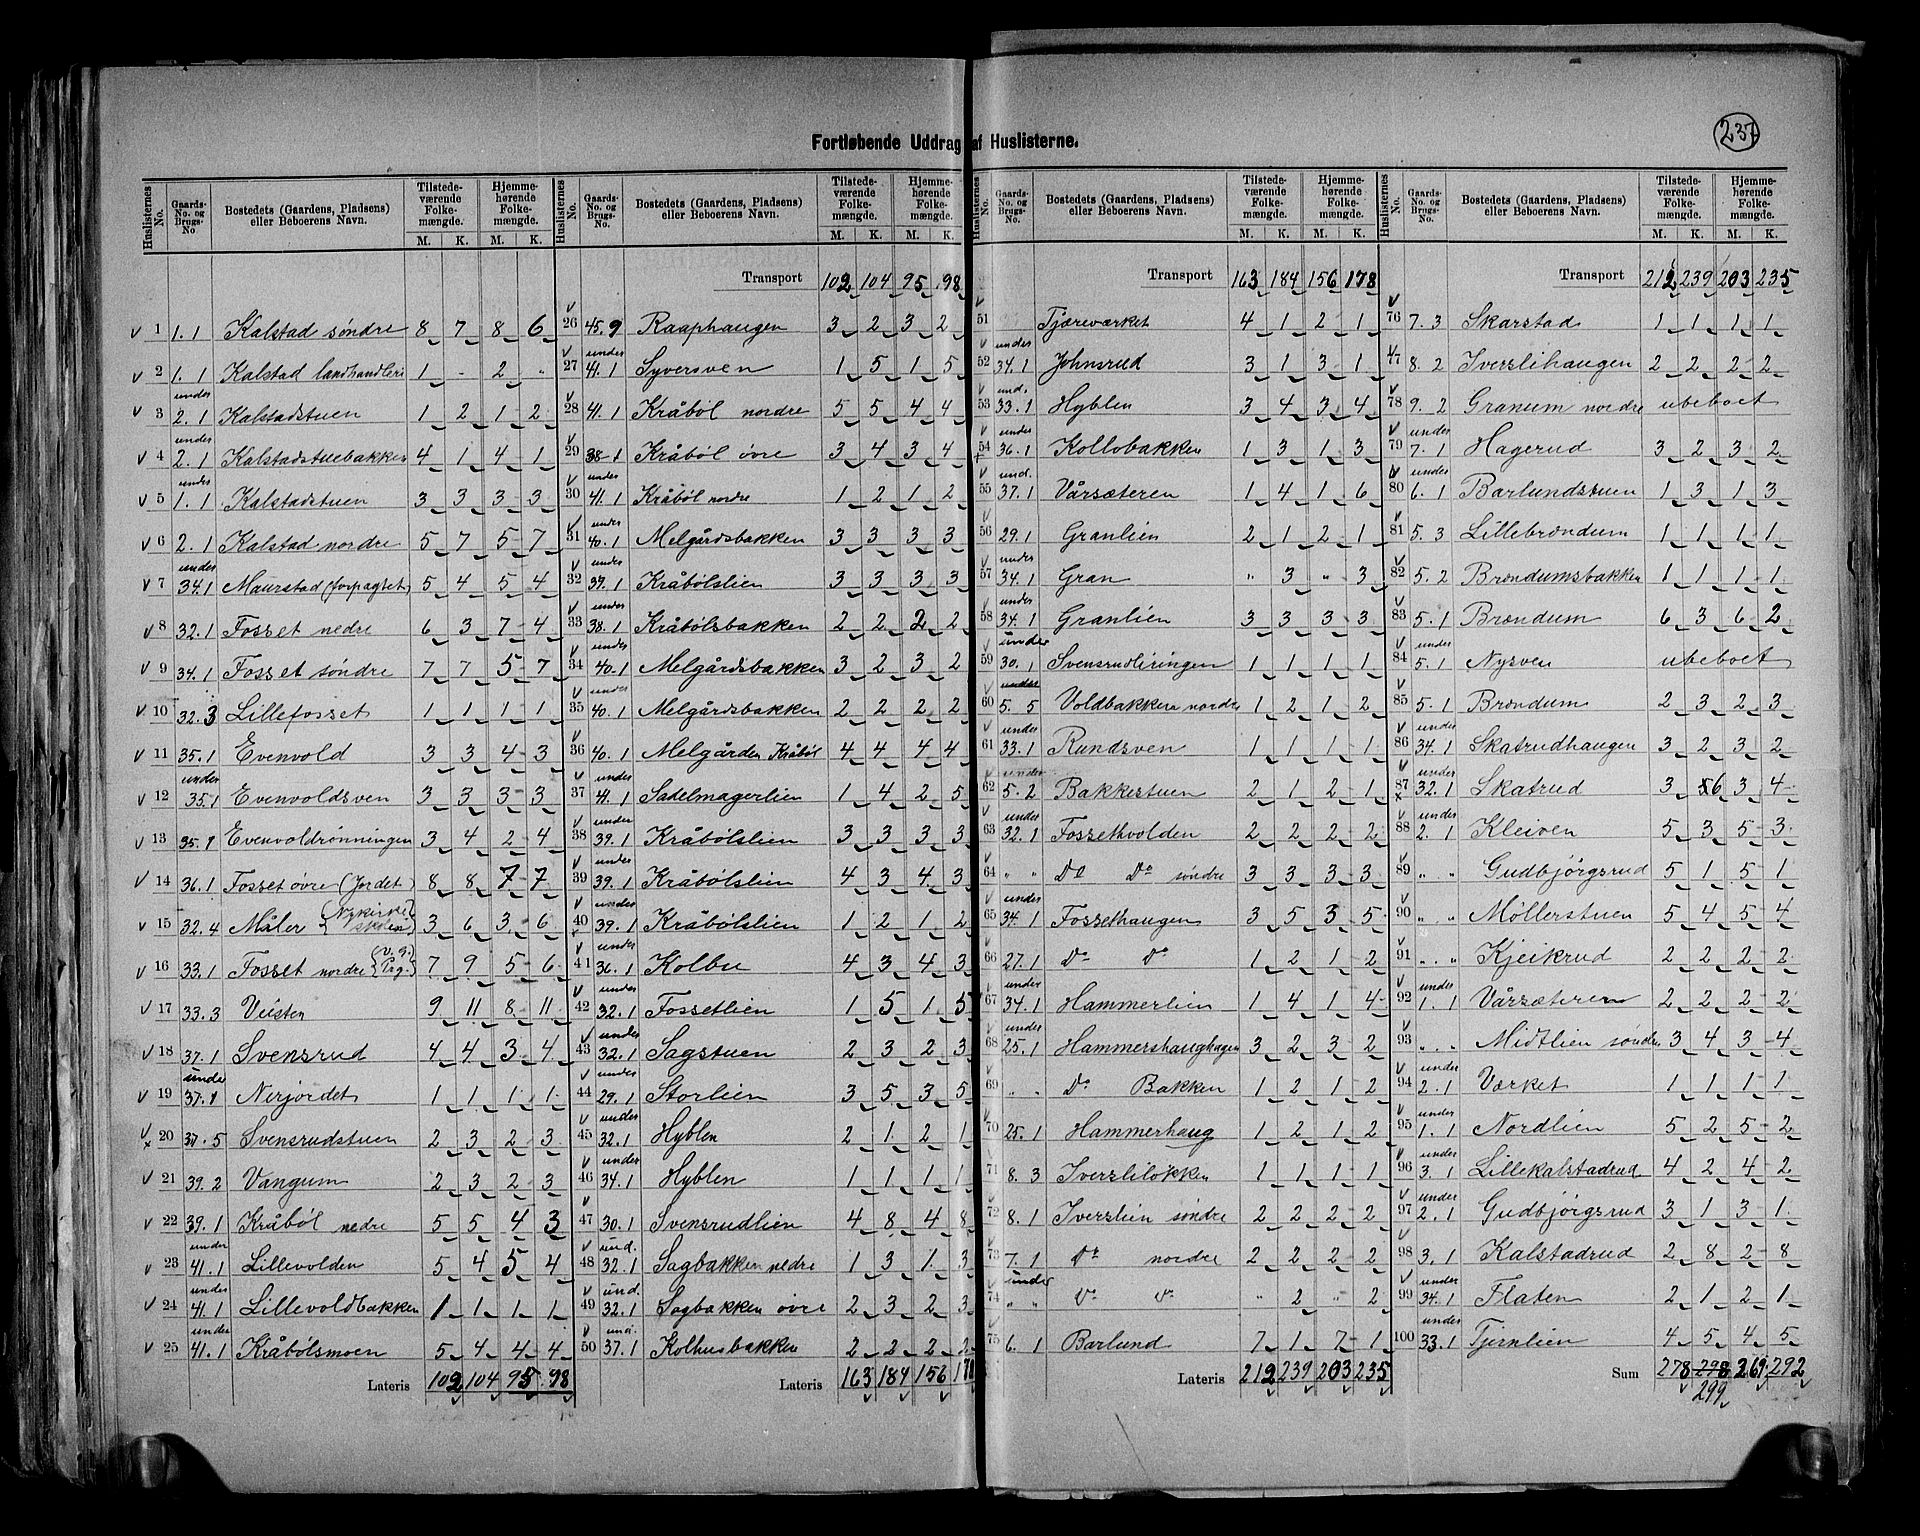 237
Fortløbende Uddrag af Huslisterne.
Huslisternes No. | Gaards-No. og Brugs-No | Bostedets (Gaardens, Pladsens) eller Beboerens Navn. | Tilstedeværende Folkemængde. M. K. | Hjemmehørende Folkemængde. M. K.
1 1.1 Kalstad søndre 8 7 8 6
2 1.1 Kalstad landhandleri 1 - 2 "
3 under 2.1 Kalstadstuen 1 2 1 2
4 under 2.1 Kalstadstuebakken 4 1 4 1
5 under 1.1 Kalstadstuen 3 3 3 3
6 2.1 Kalstad nordre 5 7 5 7
7 under 34.1 Maurstad (forpagtet) 5 4 5 4
8 32.1 Fosset nedre 6 3 7 4
9 34.1 Fosset søndre 7 7 5 7
10 32.3 Lillefosset 1 1 1 1
11 35.1 Evenvold 3 3 4 3
12 under 35.1 Evenvoldsven 3 3 3 3
13 35.1 Evenvoldrønningen 3 4 2 4
14 36.1 Fosset øvre (Jordet) 8 8 7 7
15 32.4 Måler {Nykirke skolen} 3 6 3 6
16 33.1 Fosset nordre (V.G. Prg.) 7 9 5 6
17 33.3 Veisten 9 11 8 11
18 37.1 Svensrud 4 4 3 4
19 under 37.1 Nerjordet 1 1 1 1
20 37.5 Svensrudstuen 2 3 2 3
21 39.2 Vangum 2 3 2 3
22 39.1 Kråbøl nedre 5 5 4 3
23 under 41.1 Lillevolden 5 4 5 4
24 under 41.1 Lillevoldbakken 1 1 1 1
25 under 41.1 Kråbølsmoen 5 4 4 4
Lateris 102 104 95 98
Huslisternes No. | Gaards-No. og Brugs-No. | Bostedets (Gaardens, Pladsens) eller Beboerens Navn. | Tilstedeværende Folkemængde. M. K. | Hjemmehørende Folkemængde. M. K.
Transport 102 104 95 98
26 45.9 Raaphaugen 3 2 3 2
27 under 41.1 Syversven 1 5 1 5
28 41.1 Kråbøl nordre 5 5 4 4
29 38.1 Kråbøl øvre 3 4 3 4
30 under 41.1 Kråbøl nordre 1 2 1 2
31 under 40.1 Melgårdsbakken 3 3 3 3
32 under 39.1 Kråbølslien 3 3 3 3
33 under 38.1 Kråbølsbakken 2 2 2 2
34 under 40.1 Melgårdsbakken 3 2 3 2
35 under 40.1 Melgårdsbakken 2 2 2 2
36 40.1 Melgården Kråbøl 4 4 4 4
37 under 41.1 Sadelmagerlien 1 4 2 5
38 under 39.1 Kråbølslien 3 3 3 3
39 under 39.1 Kråbølslien 4 3 4 3
40 under 39.1 Kråbølslien 1 2 1 2
41 under 36.1 Kolbu 4 3 4 3
42 under 32.1 Fossetlien 1 5 1 5
43 under 32.1 Sagstuen 2 3 2 3
44 under 29.1 Storlien 3 5 3 5
45 under 32.1 Hyblen 2 1 2 1
46 under 34.1 Hyblen 1 1 1 1
47 30.1 Svensrudlien 4 8 4 8
48 und. 32.1 Sagbakken nedre 1 3 1 3
49 und. 32.1 Sagbakken øvre 2 3 2 3
50 und. 37.1 Kolhusbakken 2 2 2 2
Lateris 163 184 156 178
No. | Gaards-No. og Brugs-No. | Bostedets (Gaardens, Pladsens) eller Beboerens Navn. | Tilstedeværende Folkemængde. M. K. | Hjemmehørende Folkemængde. M. K.
Transport 163 184 156 178
51 Tjæreværket 4 1 2 1
52 under 34.1 Johnsrud 3 1 3 1
53 und. 33.1 Hyblen 3 4 3 4
54 under 36.1 Kollobakken 1 3 1 3
55 und. 37.1 Vårsæteren 1 4 1 6
56 29.1 Granlien 2 1 2 1
57 under 34.1 Gran " 3 " 3
58 under 34.1 Granlien 3 3 3 3
59 under 30.1 Svensrudliringen 1 1 1 1
60 under 5.5 Voldbakken nordre 1 2 1 2
61 under 33.1 Rundsven 1 1 1 1
62 under 5.2 Bakkestuen 2 1 2 1
63 under 32.1 Fossethvolden 2 2 2 2
64 " " Do Do søndre 3 3 3 3
65 under 34.1 Fossethaugen 3 5 3 5
66 27.1 Do Do 1 2 1 2
67 under 34.1 Hammerlien 1 4 1 4
68 under 25.1 Hammershaughagen 3 2 3 2
69 " " Do Bakken 1 2 1 2
70 25.1 Hammerhaug 1 2 1 2
71 8.3 Iversliløkken 1 1 1 1
72 8.1 Iverslien søndre 2 2 2 2
73 7.1 Do nordre 2 2 2 2
74 under " " Do Do " 2 " 2
75 6.1 Barlund 7 1 7 1
Lateris 212 239 203 235
Huslisternes No. | Gaards-No. og Brugs-No. | Bostedets (Gaardens, Pladsens) eller Beboerens Navn. | Tilstedeværende Folkemængde. M. K. | Hjemmehørende Folkemængde. M. K.
Transport 212 239 203 235
76 7.3 Skarstad 1 1 1 1
77 8.2 Iverslihaugen 2 2 2 2
78 9.2 Granum nordre ubeboet
79 under 7.1 Hagerud 3 2 3 2
80 under 6.1 Barlundstuen 1 3 1 3
81 5.3 Lillebrøndum 1 1 1 1
82 5.2 Brøndumsbakken 1 1 1 1
83 5.1 Brøndum 6 3 6 2
84 under 5.1 Nysven ubeboet
85 5.1 Brøndum 2 3 2 3
86 under 34.1 Skatrudhaugen 3 2 3 2
87 under 32.1 Skatrud 3 6 3 4
88 under 2.1 Kleiven 5 3 5 3
89 " " Gudbjørgsrud 5 1 5 1
90 " " Møllerstuen 5 4 5 4
91 " " Kjeikrud 2 2 2 2
92 under 1.1 Vårsæteren 2 2 2 2
93 " " Midtlien søndre 3 4 3 4
94 under 2.1 Værket 1 1 1 1
95 under 1.1 Nordlien 5 2 5 2
96 under 3.1 Lillekalstadrud 4 2 4 2
97 under 2.1 Gudbjørgsrud 3 1 3 1
98 3.1 Kalstadrud 2 8 2 8
99 under 34.1 Flaten 2 1 2 1
100 under 33.1 Tjernlien 4 5 4 5
Sum 278 298 269 292
299